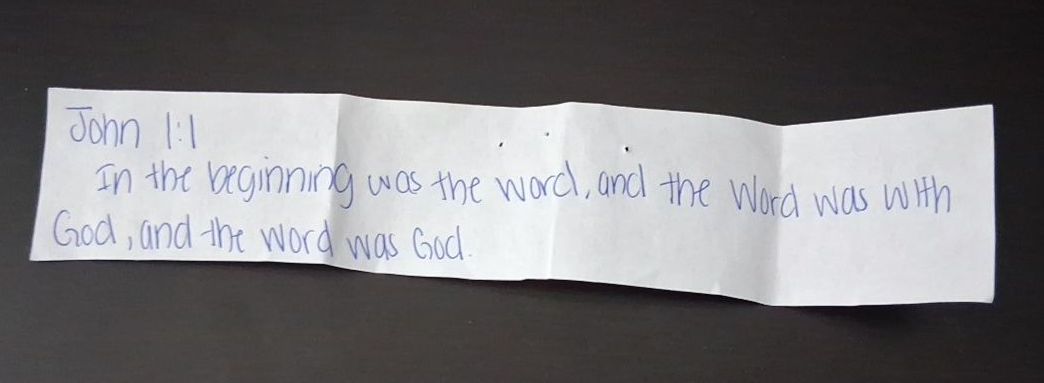 John 1:1
In the beginning was the word, and the Word was with
God, and the word was God.